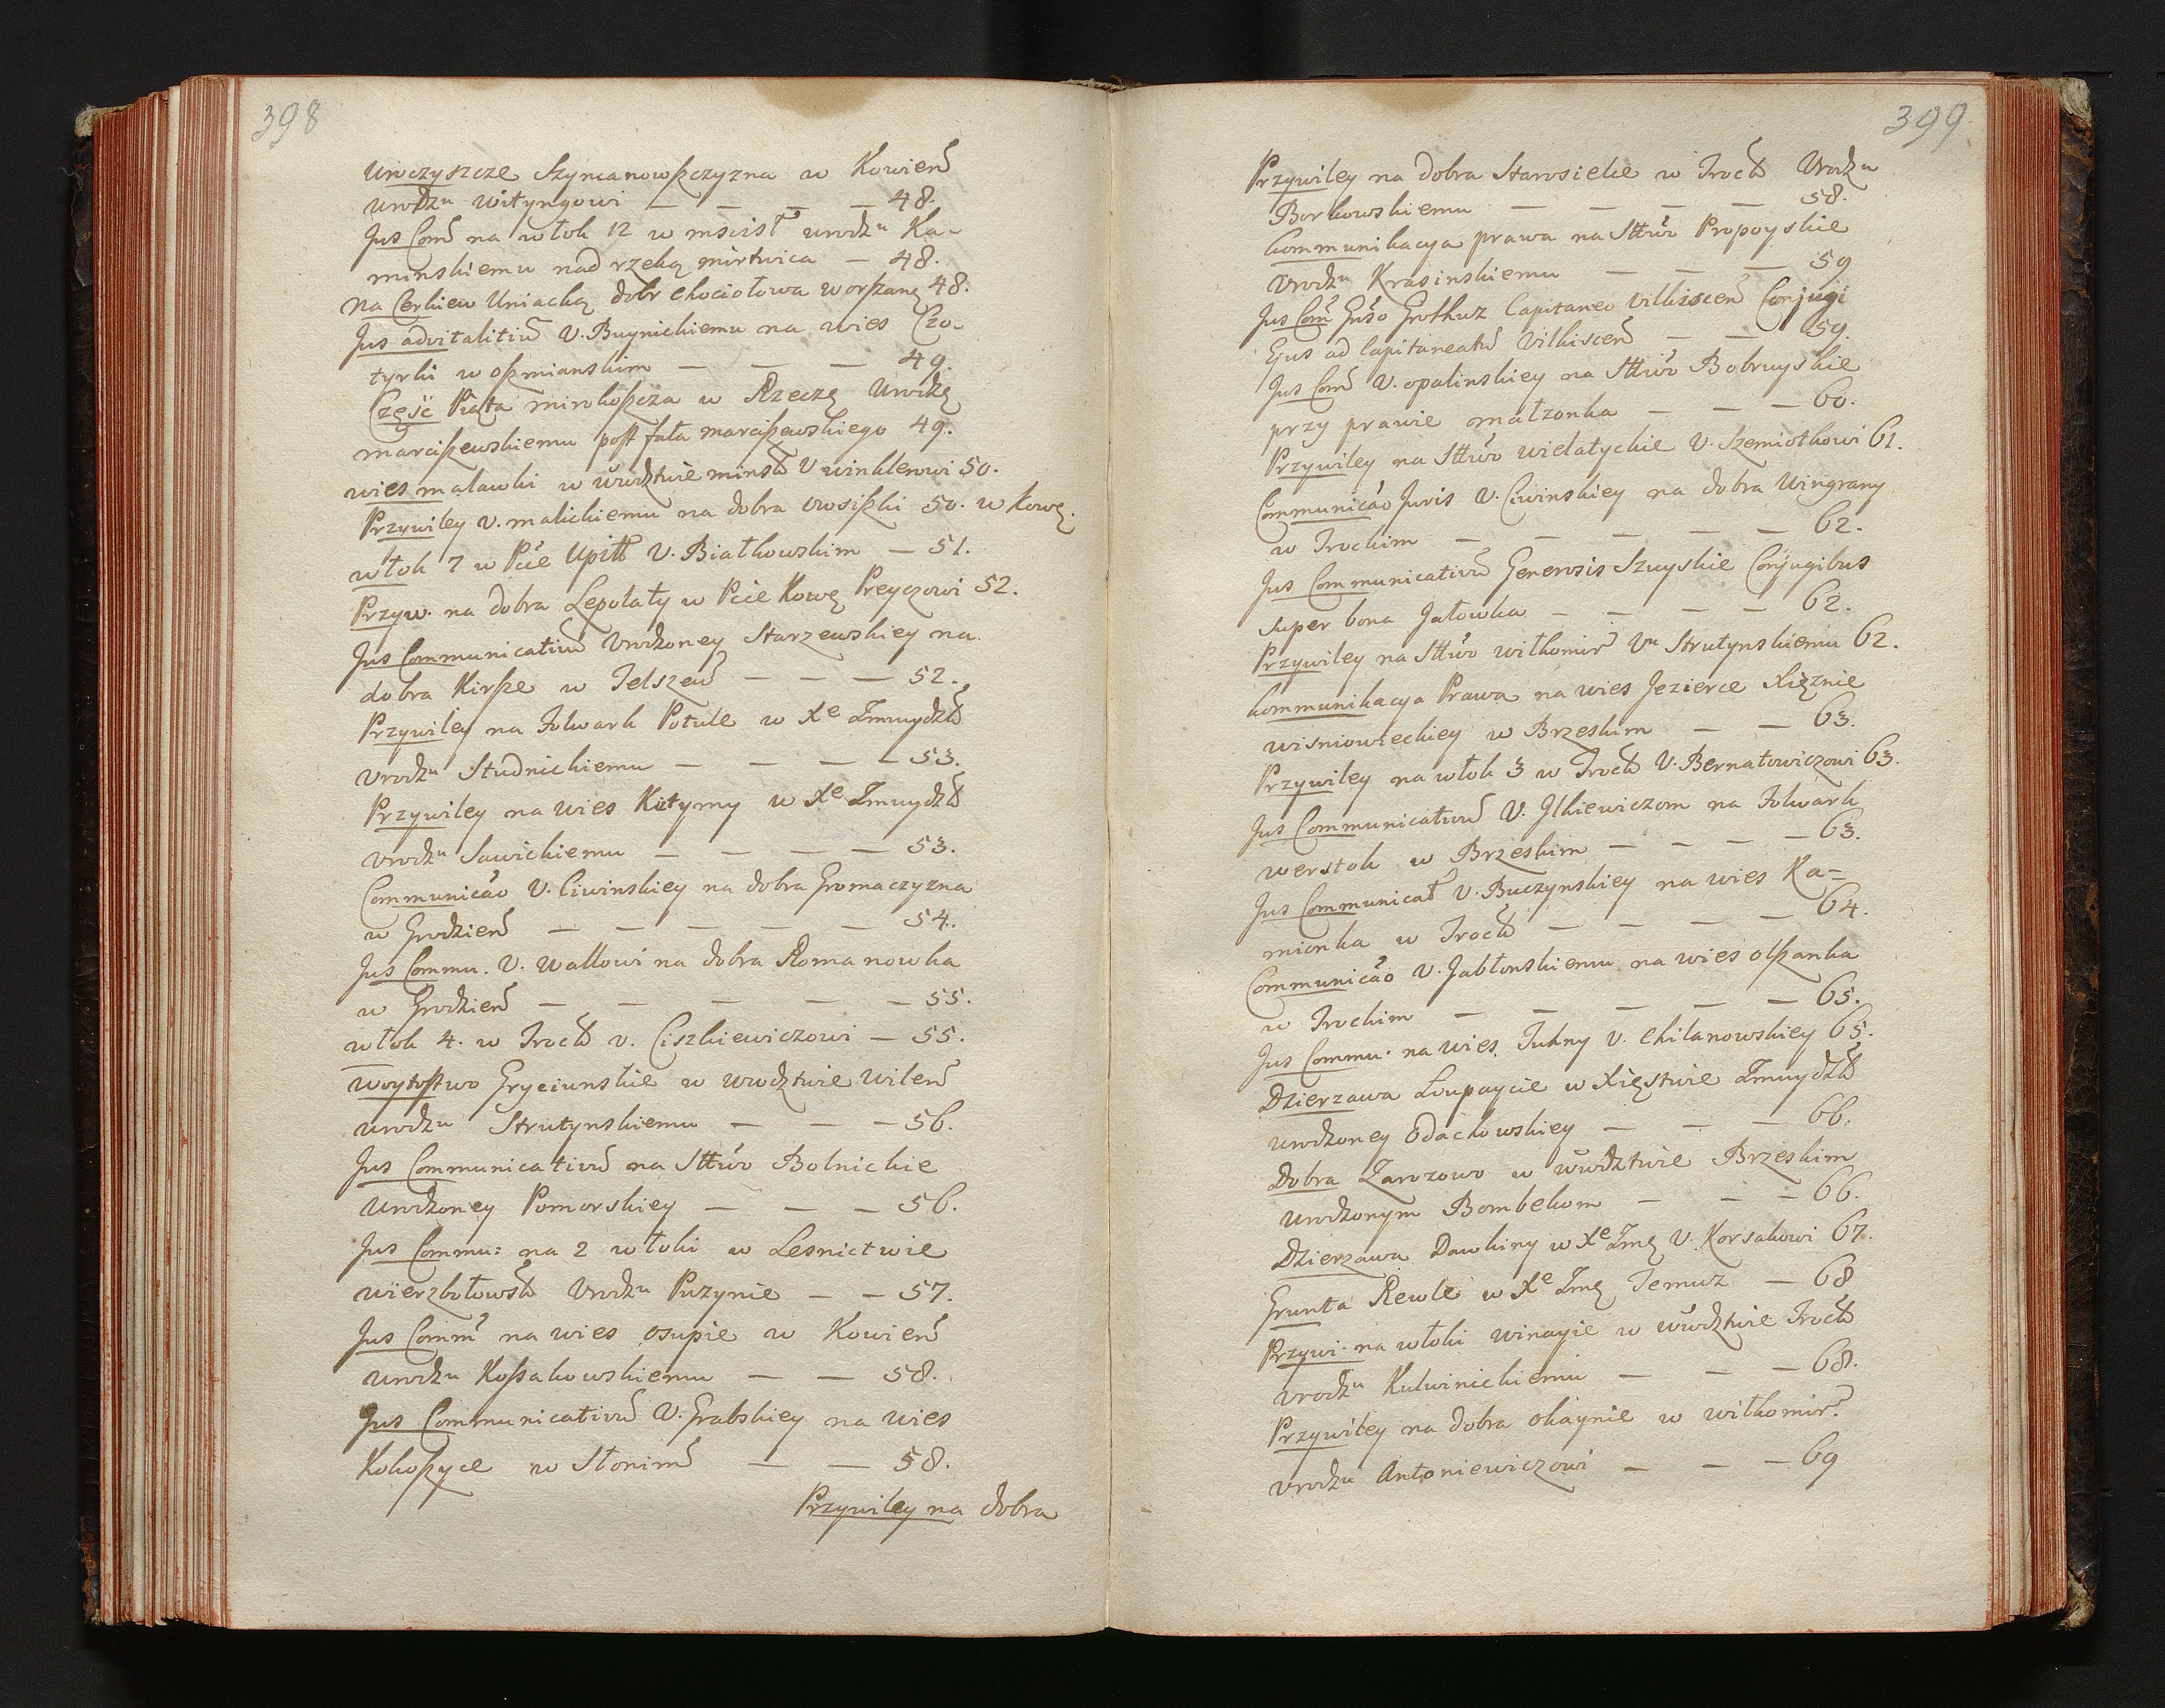 398
Uroczyszcze Szymanowszczyzna w Kowień
urodzu Wityngowi — — — — 48.
Jus Com̃ na włok 12 w mścisł urodzu Ka-
minskiemu nad rzeką mirtwica — 48.
Na Cerkiew Uniacką dobr Chociotowa w orszanę 48.
Jus advitalitiũ U. Buynickiemu na wies Czo-
tyrki w oszmianskim — — — 49.
Część Piąta mirokoszcza w Rzeczę Urodzę
marciszewskiemu post fata marciszewskiego 49.
wies maławki w wudztwie minsk U winklerowi 50.
Przywiley U. malickiemu na dobra owosiszki 50. w Kowę.
włok 7 w Pcie Upitt U. Białkowskim — 51.
Przyw. na dobra Lepolaty w Pcie Kowę Preyczowi 52.
Jus Communicatiũ Urodzoney Starzewskiey na
dobra Kirsze w Telszew — — — 52.
Przywiley na Folwark Potule w Xe Zmuydzk
Urodzu Studnickiemu — — — — 53.
Przywiley na wies Kutymy w Xe Zmuydzk
Urodzu Sawickiemu — — — — 53.
Communicão U. Ciwinskiey na dobra Gromaczyzna
w Grodzień — — — — — 54.
Jus Commu. U. Wallowi na dobra Romanowka
w Grodzień — — — — — 55.
włok 4. w Trock U. Ciszkiewiczowi — 55.
Woytostwo Gryciunskie w wwdztwie Wileń
urodzu Strutynskiemu — — — 56.
Jus Communicativũ na Sttwo Bolnickie
Urodzoney Pomorskiey — — — 56.
Jus Commu: na 2 włoki w Lesnictwie
wierzbołowsk Urodzu Puzynie — — 57.
Jus Comm̃ na wies osupie w Kowień
urodzu Kossakowskiemu — — 58.
Jus Communicativũ U. Grabskiey na wies
Kokoszyce w Słonim̃ — — 58.
Przywiley na dobra
399
Przywiley na dobra Starosiele w Trock Urodzu
Borkowskiemu — — — — 58.
Communikacya prawa na Sttwo Propoyskie
Urodzu Krasinskiemu — — — 59
Jus Com̃ Gnso Grothuz Capitaneo Vilkiscen Conjugi
Ejus ad Capitaneatũ Vilkisceñ — — 59.
Jus Com̃ U. opalinskiey na Sttwo Bobruyskie
przy prawie małzonka — — — 60.
Przywiley na Sttwo wielatyckie U. Szemiotkowi 61.
Communicão Juris U. Ciwinskiey na dobra Wingrany
w Trockim — — — — — 62.
Jus Communicativũ Generosis Szuyskie Conjugibus
super bona Jatowka — — — — 62.
Przywiley na Sttwo wiłkomir Uu Strutynskiemu 62.
Communikacya Prawa na wies Jezierce Xięznie
wisniowieckiey w Brzeskim — — 63.
Przywiley na włok 3 w Trock U. Bernatowiczowi 63.
Jus Communicativũ U. Ilkiewiczom na Folwark
werstok w Brzeskim — — — — 63.
Jus Communicat U. Buczynskiey na wies Ka=
mionka w Trock — — — — 64.
Communicão U. Jabłonskiemu na wies olszanka
w Trockim — — — — — 65.
Jus Commu. na wies Tukny U. Chilanowskiey 65.
Dzierzawa Loupaycie w Xięstwie Zmuydzk
urodzoney Odachowskiey — — — 66.
Dobra Zarozowo w wudztwie Brzeskim
Urodzonym Bombekom — — — 66.
Dzierzawa Dawkiny w Xe Zmę U. Korsakowi 67.
Grunta Rewle w Xe Zmę Temuz — 68
Przywi. na włoki winayie w wudztwie Trock
Urodzu Kulwinickiemu — — — 68.
Przywiley na dobra okaynie w wiłkomir
Urodzu Antoniewiczowi — — — 69